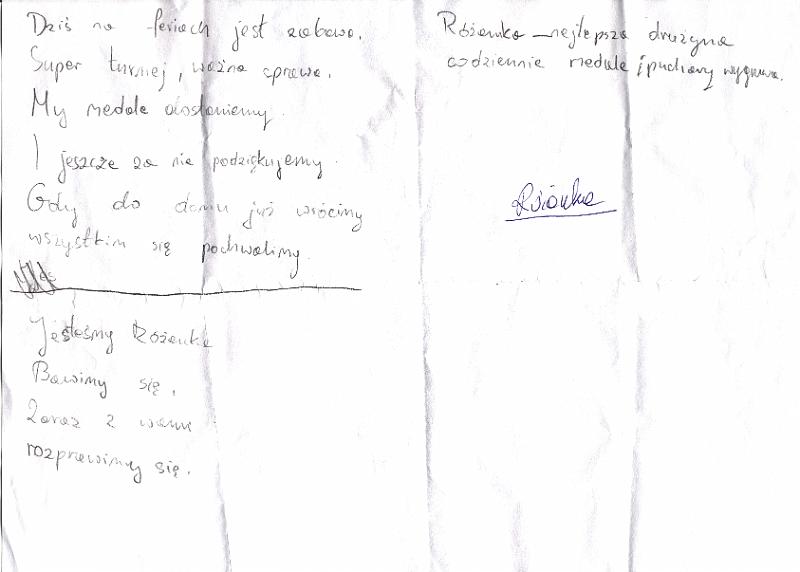 Dziś na feriach jest zabawa.
Super turniej, ważna sprawa.
My medale dostaniemy.
I jeszcze za nie podziękujemy.
Gdy do domu już wrócimy
wszystkim się pochwalimy.
Jesteśmy Różanka
Bawimy się,
Zaraz z wami
rozprawimy się.
Różanka – najlepsza drużyna
codziennie medale i puchary wygrywa.
Różanka